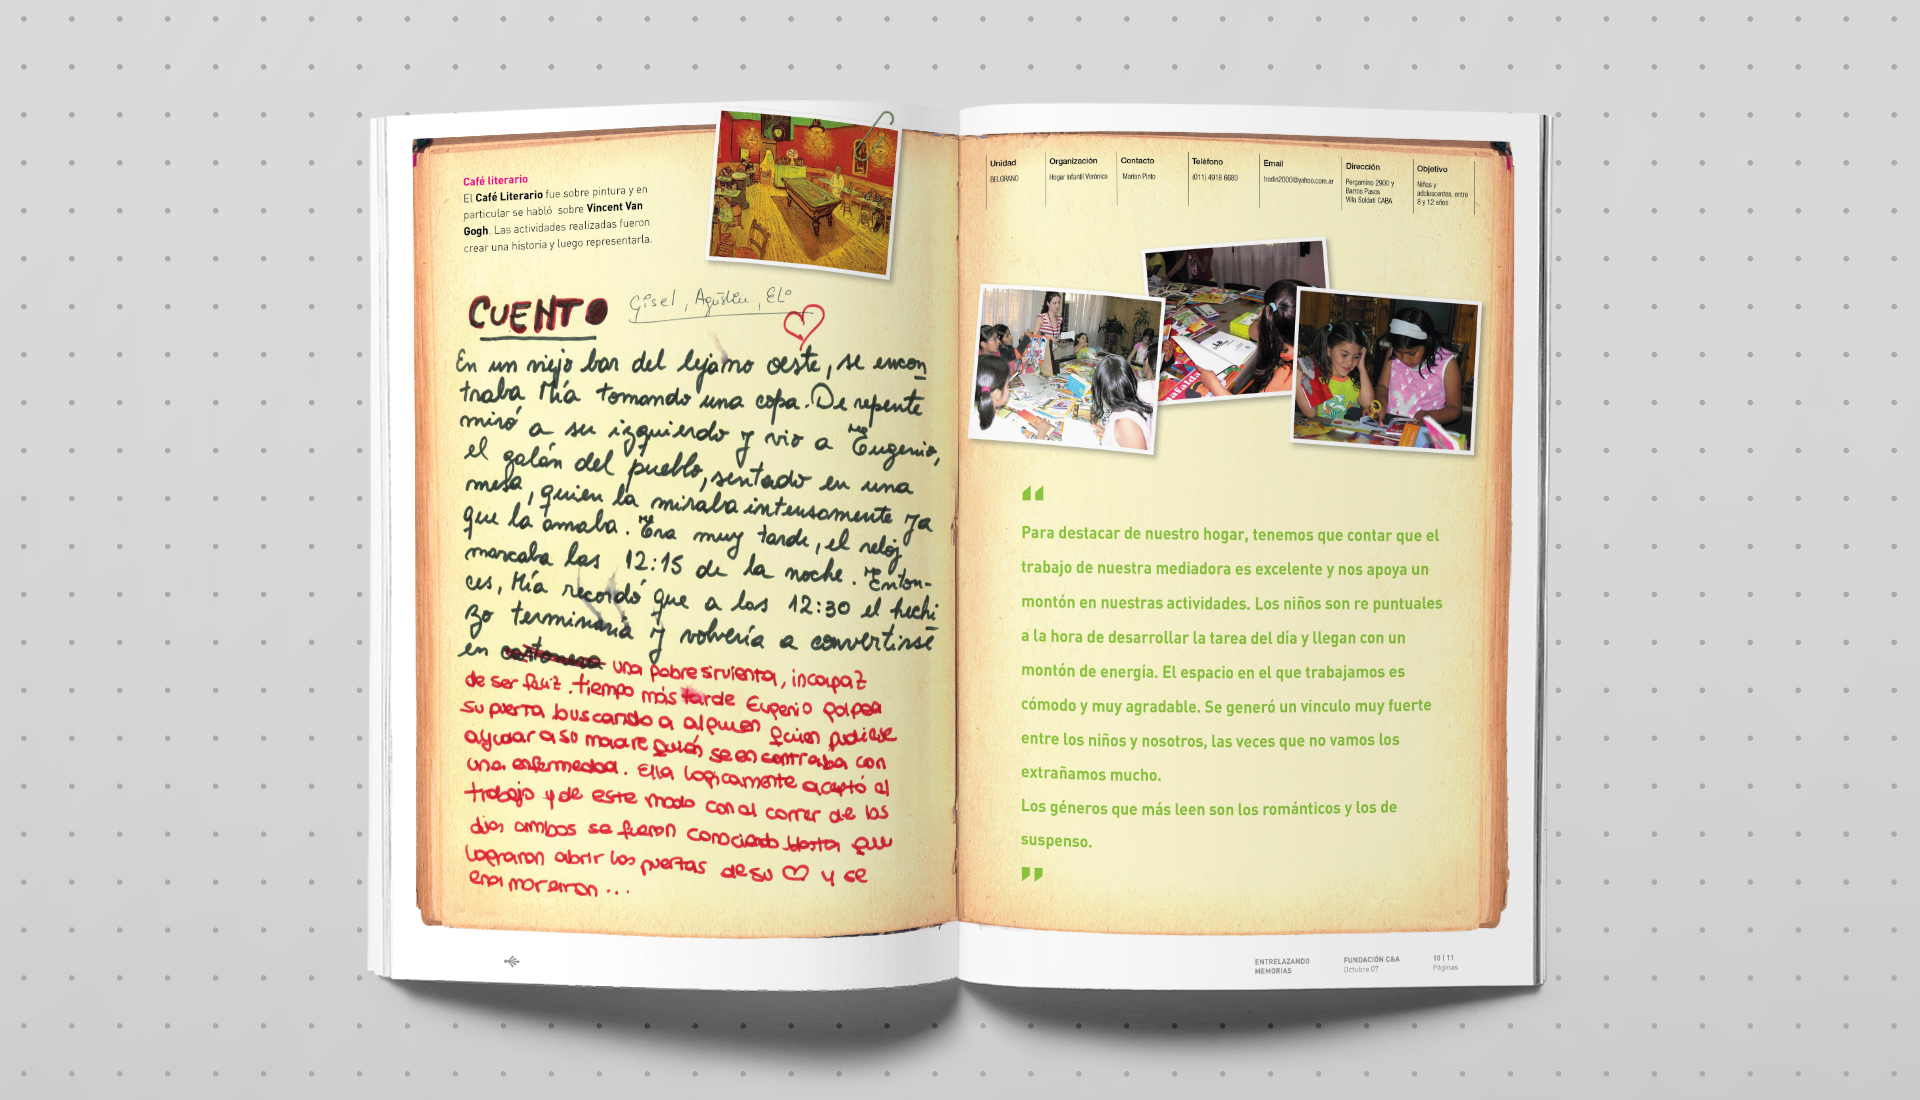 Café literario
El Café Literario fue sobre pintura y en
particular se habló sobre Vincent Van
Gogh. Las actividades realizadas fueron
crear una historia y luego representarla.
CUENTO
Gisel, Agustín, EL
En un viejo bar del lejano oeste, se encon
traba Mía tomando una copa. De repente
miró a su izquierdo y vio a Eugenio,
el galán del pueblo, sentado en una
mesa, quien la miraba intensamente ya
que la amaba. Era muy tarde, el reloj
marcaba las 12:15 de la noche. Enton-
ces, Mía recordó que a las 12:30 el hechi
zo terminaría y volvería a convertirse
en una pobre sirvienta, incapaz
de ser feliz. tiempo más tarde Eugenio golpea
su puerta buscando a alguien quien pudiese
ayudar a so madre quién se encontraba con
una enfermedad. Ella logicamente aceptó al
trabajo y de este modo con al correr de los
dias ambos se fueron conociendo hasta que
lograron abrir los puertas de su y se
enamoraron...
Unidad
BELGRANO
Organización
Hogar Infantil Verónica
Contacto
Marian Pinto
Teléfono
(011) 4918 6680
Email
trodin2000@yahoo.com.ar
Dirección
Pergamino 2900 y
Barros Pasos
Villa Soldati CABA
Objetivo
Niños y
adolescentes, entre
8 y 12 años
Mafalda
“
Para destacar de nuestro hogar, tenemos que contar que el
trabajo de nuestra mediadora es excelente y nos apoya un
montón en nuestras actividades. Los niños son re puntuales
a la hora de desarrollar la tarea del día y llegan con un
montón de energía. El espacio en el que trabajamos es
cómodo y muy agradable. Se generó un vinculo muy fuerte
entre los niños y nosotros, las veces que no vamos los
extrañamos mucho.
Los géneros que más leen son los románticos y los de
suspenso.
”
ENTRELAZANDO
MEMORIAS
FUNDACIÓN C&A
Octubre 07
10 | 11
Páginas